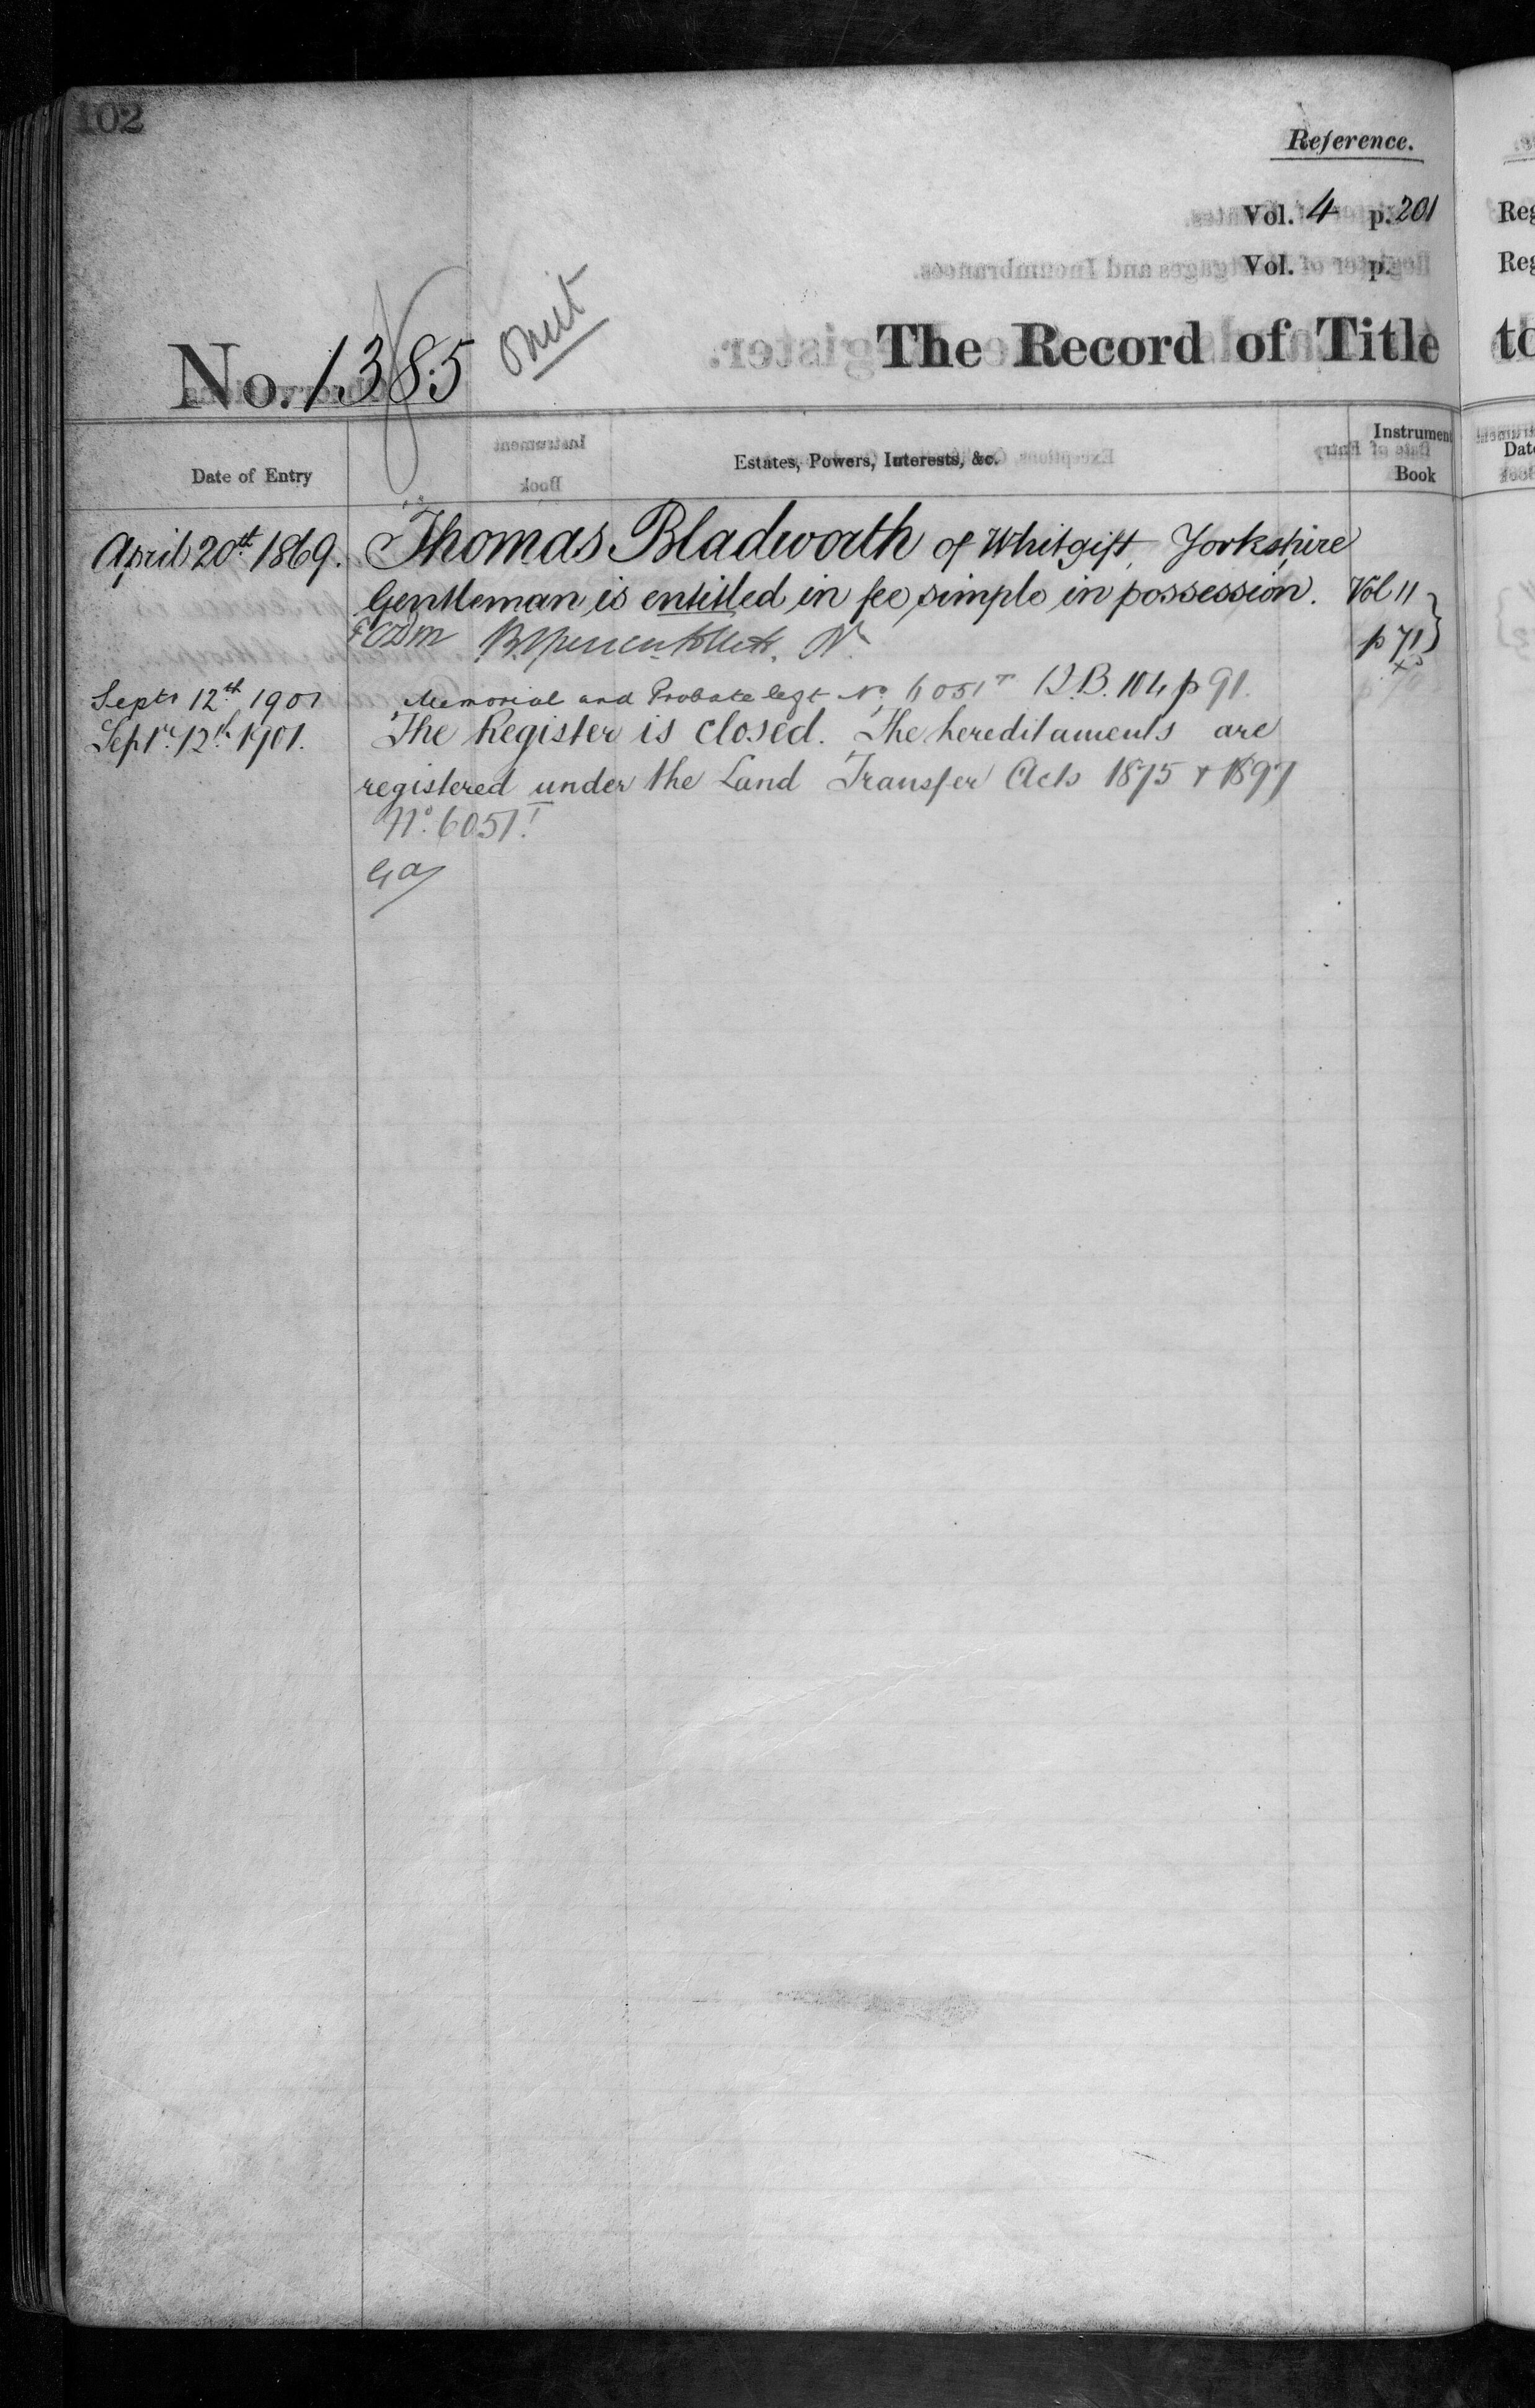 102
Reference.
Vol. 4 p. 201
Vol. p.
No. 1385
Omit
The Record of Title
Date of Entry
Estates, Powers, Interests, &c.
Instrument
Book
April 20th 1869. Thomas Bladworth of Whitgift, Yorkshire
Gentleman is entitled in fee simple in possession. Vol 11
p 71
Septr 12th 1901 Memorial and Probate regt No 6051 T D.B. 104 p 91.
Septr 12th 1901. The Register is closed. The hereditaments are
registered under the Land Transfer Acts 1875 & 1897
No. 6051 T
Reg
Reg
to